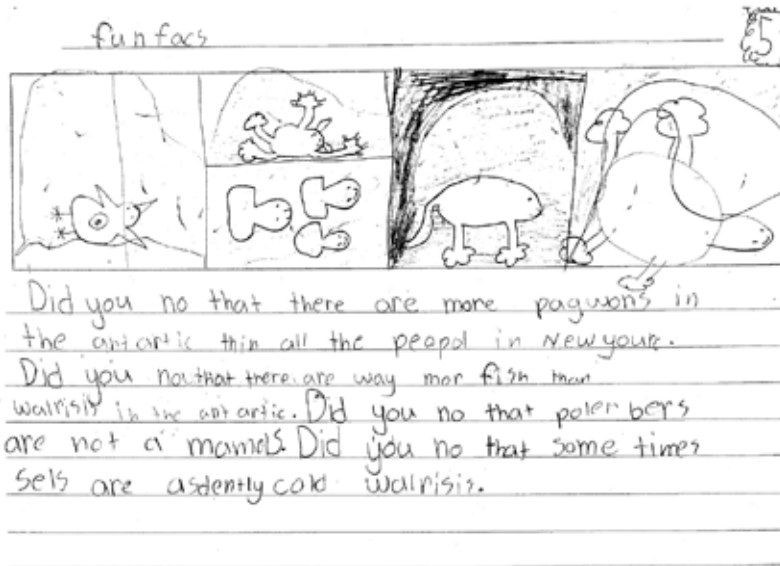 fun facs
5
Did you no that there are more pagwons in
the antartic thin all the peapol in Newyourk.
Did you no that there are way mor fish than
walrisis in the antartic. Did you no that poler bers
are not a mamels. Did you no that some times
sels are asdently cald walrisis.